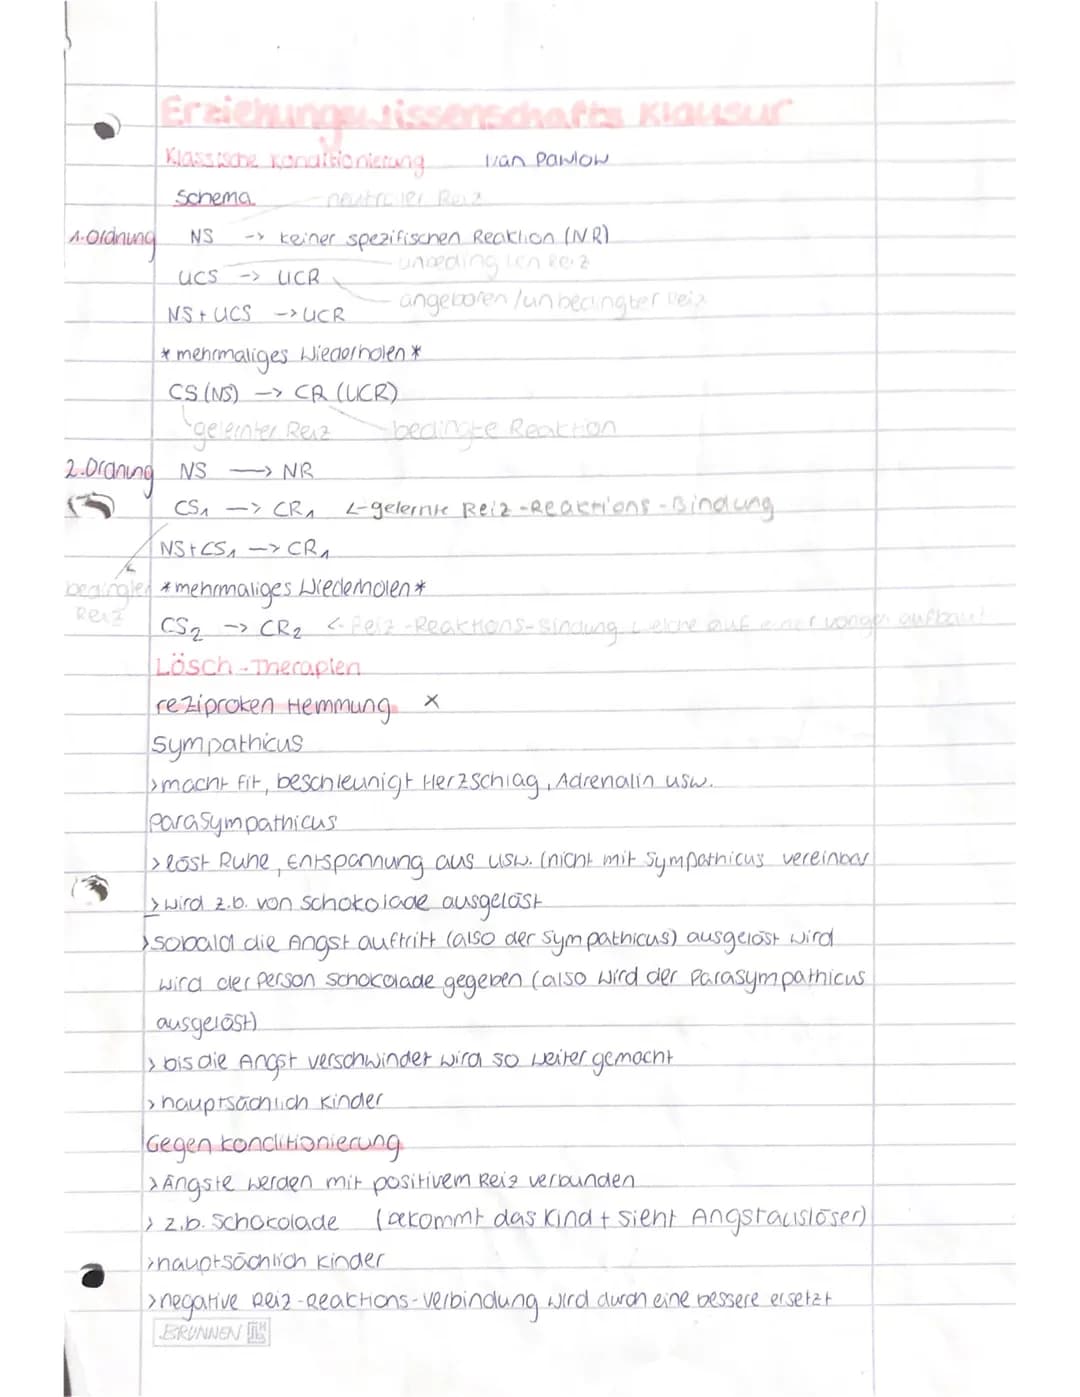 Erziehungswissenschafts Klausur
Klassische Konditionierung Ivan Pawlow
Schema neutraler Reiz
1. Ordnung NS -> keiner spezifischen Reaktion (NR)
unbedingten Reiz
UCS -> UCR
angeboren/unbedingter Reiz
NS + UCS -> UCR
* mehrmaliges Wiederholen *
CS (NS) -> CR (UCR)
gelernter Reiz bedingte Reaktion
2. Ordnung NS -> NR
CS1 -> CR1 <- gelernte Reiz-Reaktions-Bindung
NS + CS1 -> CR1
bedingter * mehrmaliges Wiederholen *
Reiz
CS2 -> CR2 <- Reiz-Reaktions-Bindung welche auf einer vorigen aufbaut
Lösch-Therapien
reziproken Hemmung x
Sympathicus
> macht fit, beschleunigt Herzschlag, Adrenalin usw.
Parasympathicus
> löst Ruhe, Entspannung aus usw. (nicht mit Sympathicus vereinbar
> wird z.b. von Schokolade ausgelöst
> sobald die Angst auftritt (also der Sympathicus) ausgelöst wird
wird der Person Schokolade gegeben (also wird der Parasympathicus
ausgelöst)
> bis die Angst verschwindet wird so weiter gemacht
> hauptsächlich Kinder
Gegenkonditionierung
> Ängste werden mit positivem Reiz verbunden
> z.b. Schokolade (bekommt das Kind + sieht Angstauslöser)
> hauptsächlich Kinder
> negative Reiz-Reaktions-Verbindung wird durch eine bessere ersetzt
BRUNNEN